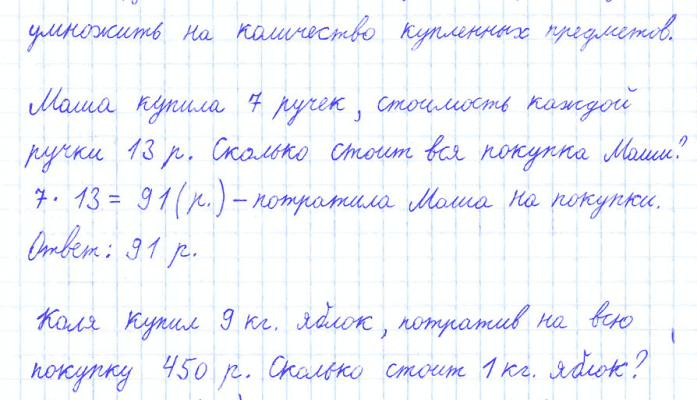 умножить на количество купленных предметов.
Маша купила 7 ручек, стоимость каждой
ручки 13 р. Сколько стоит вся покупка Маши?
7 · 13 = 91 (р.) – потратила Маша на покупки.
Ответ: 91 р.
Коля купил 9 кг. яблок, потратив на всю
покупку 450 р. Сколько стоит 1 кг. яблок?